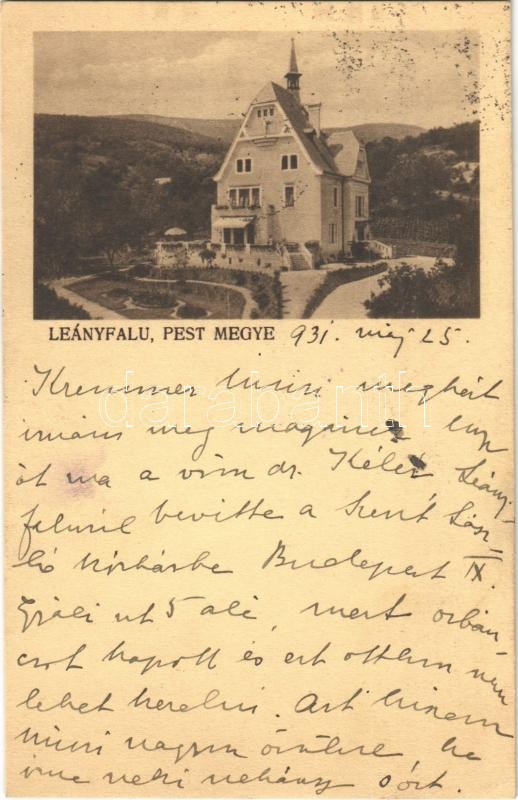 LEÁNYFALU, PEST MEGYE 931. máj 25.
darabanth
Kremmer Muisi megkért
írnám meg magának hogy
őt ma a vőm dr. Kéler Leány-
faluról bevitte a Szent Lász-
ló kórházba Budapest IX.
Gyáli út 5 alá, mert orbán-
cot kapott és ezt otthon nem
lehet kezelni. Azt hiszem
nagyon örülne ha
írna neki néhány sort.